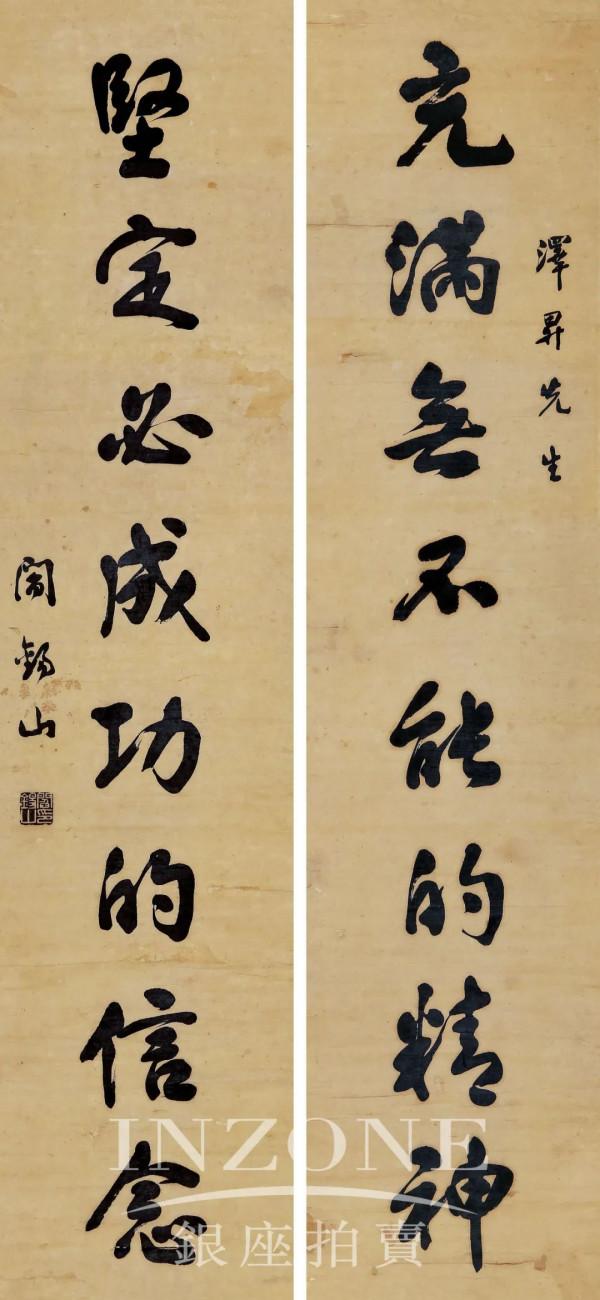 澤昇先生
充滿無不能的精神
堅定必成功的信念
閻錫山
閻錫山印
INZONE
銀座拍賣